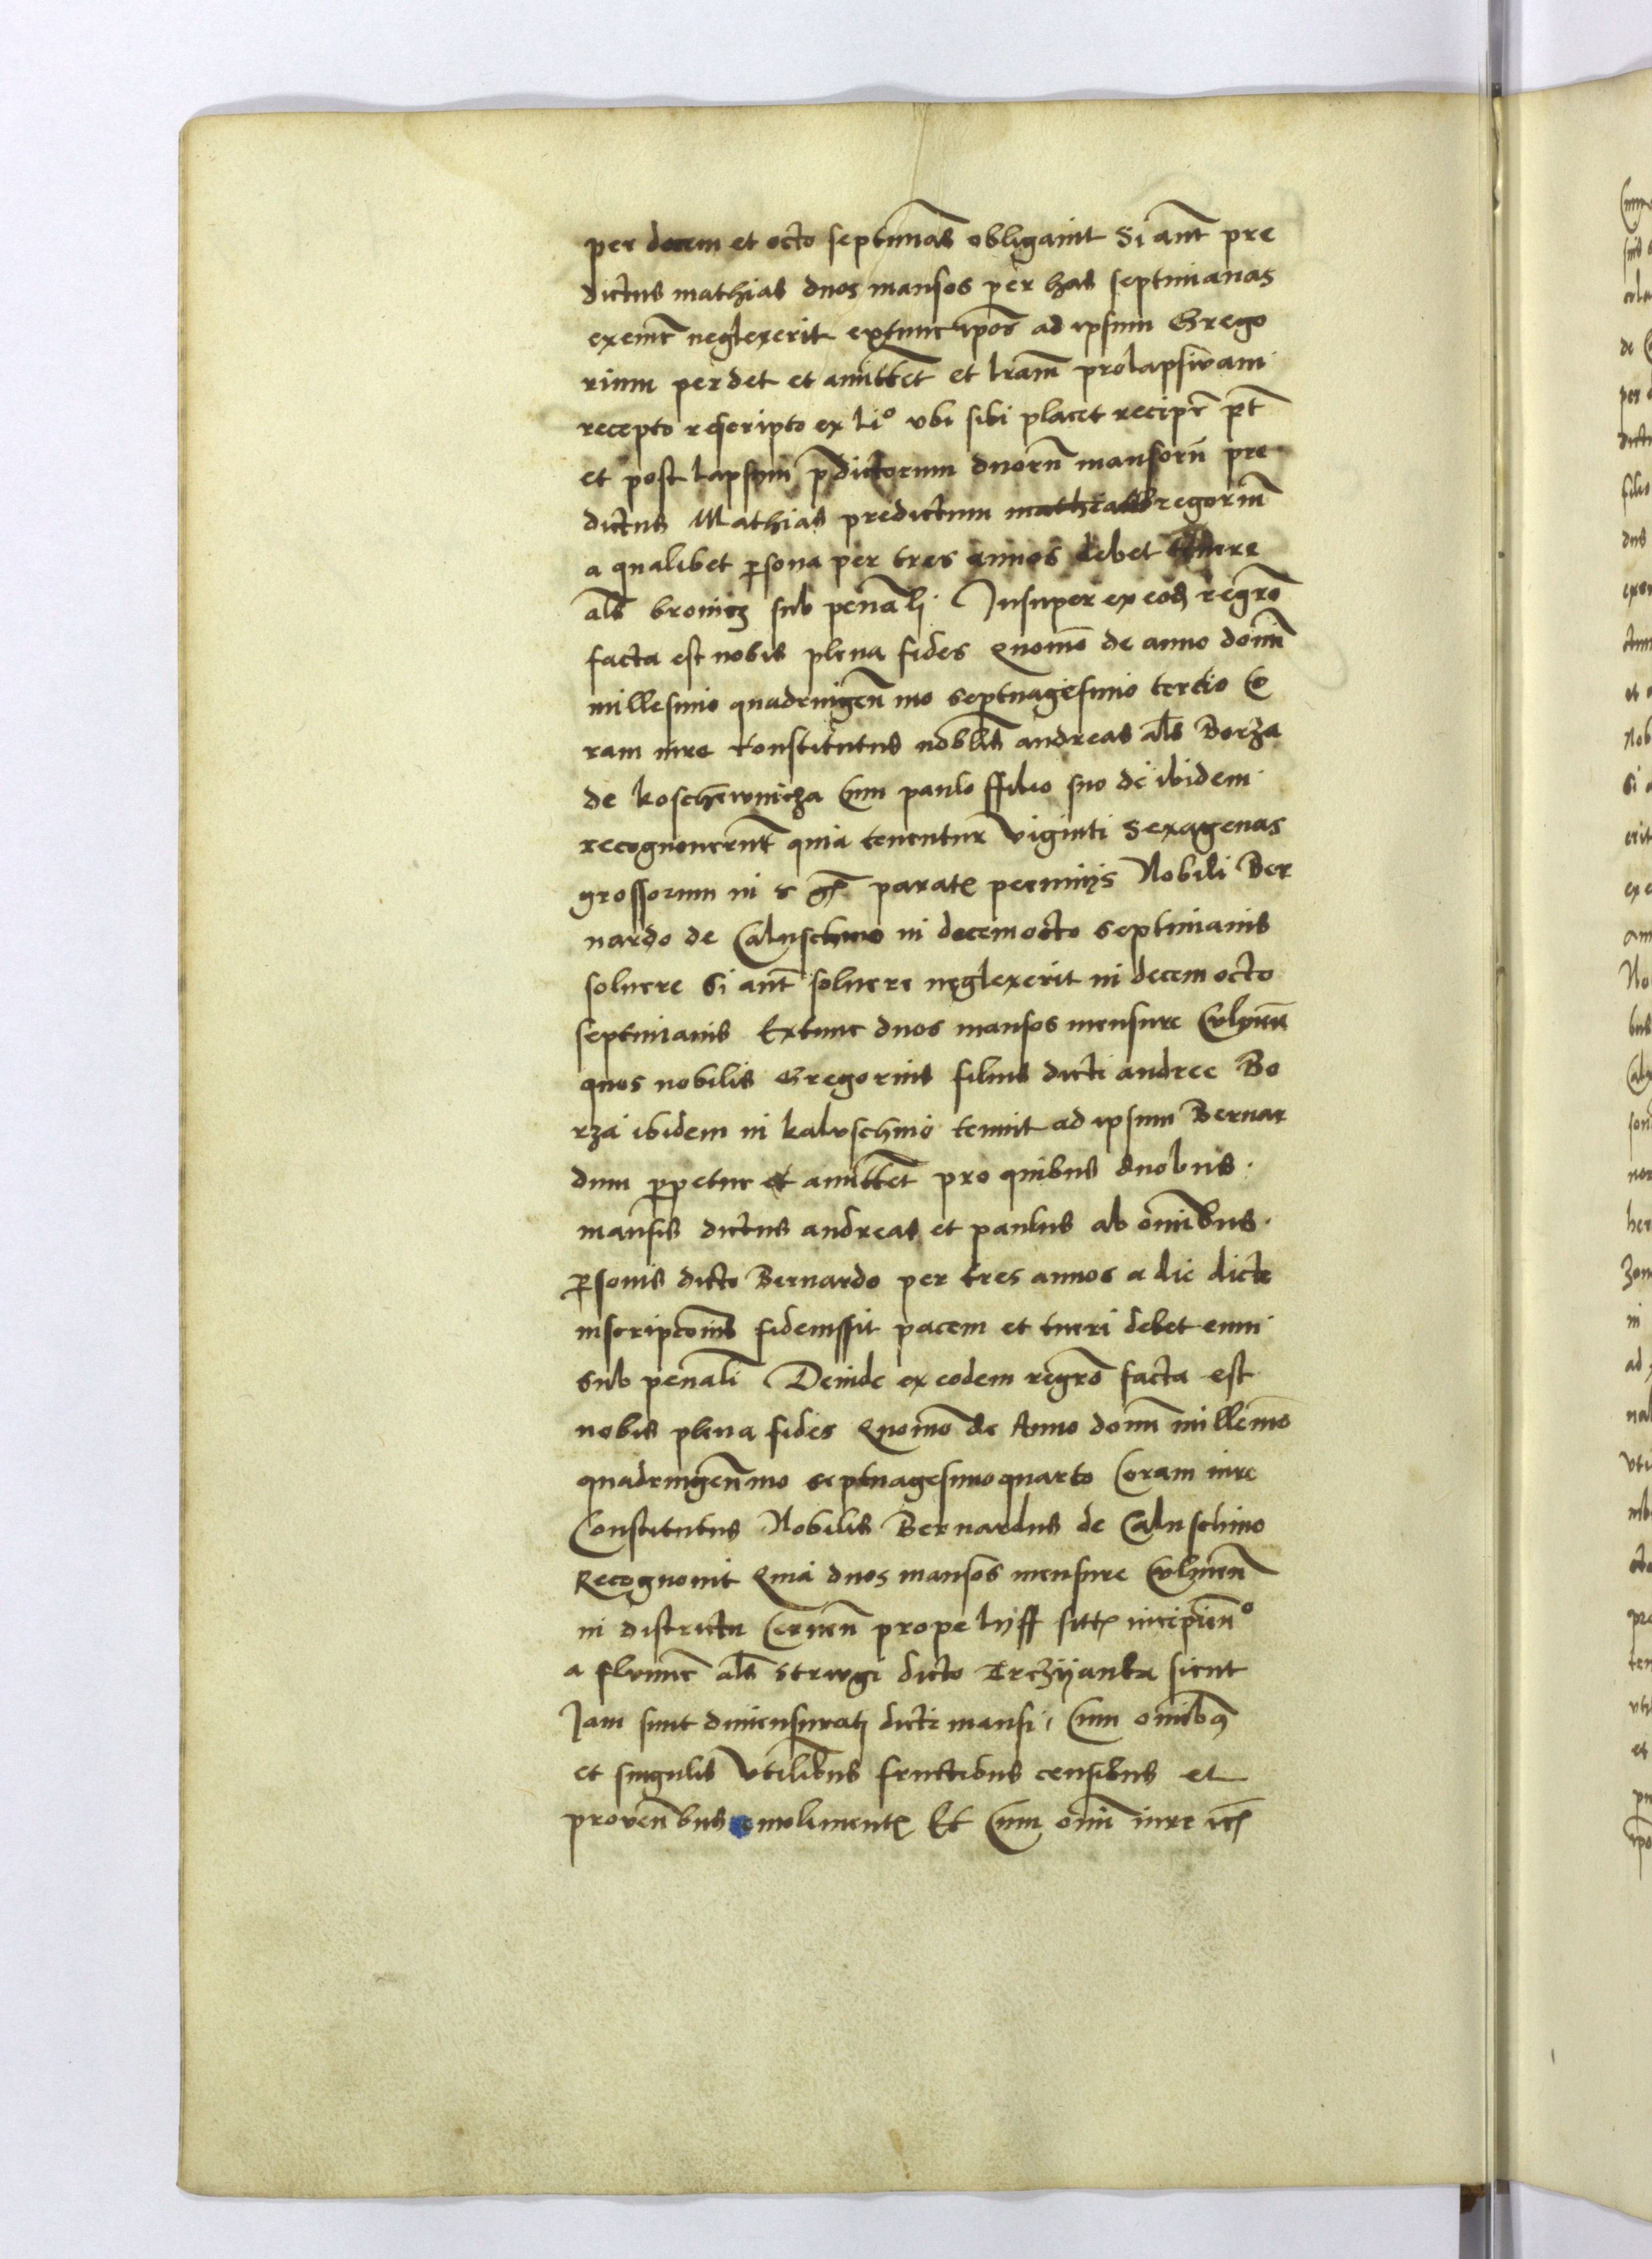 per decem et octo septimanas obligauit Si aut̄ pre
dictus mathias duos mansos per has septimanas
exemē neglexerit extunc ip̄os ad ipsum Grego
rium perdet et amittet et lr̄am prolapsiuam
recepto rescripto ex li° vbi sibi placet reciper̄ pt̄
et post lapsum p̄dictorum duorū mansorū pre
dictus Mathias predictum mathia Gregoriū
a qualibet p̄sona per tres annos debet tuere
al̄s bronicz sub penali Insuper ex eod regr̄o
facta est nobis plena fides Quomo de anno domī
millesimo quadringen̄mo septuagesimo tertio Co
ram iure constitutus nobilis andreas al̄s Borza
de koschewnicza Cum paulo ffilio suo de ibidem
recognouerūt quia tenentur viginti Sexagenas
grossorum in paratȩ pecunijs Nobili Ber
nardo de Caluschino in decemocto septimanis
soluere Si aut̄ soluere neglexerit in decem octo
septimanis Extunc duos mansos mensure Culmen̄
quos nobilis Gregorius filius dicti andree Bo
rza ibidem in kaluschino tenuit ad ipsum Bernar
dum p̄petue et amittet pro quibus duobus
mansis dictus andreas et paulus ab om̄ibus
p̄sonis dicto Bernardo per tres annos a die dicte
inscripcōis fideiussit pacem et tueri debet eum
Sub penali Deinde ex eodem regr̄o facta est
nobis plena fides Quomo de Anno domī millēmo
quadringen̄mo septuagesimoquarto Coram iure
Constitutus Nobilis Bernardus de Caluschino
Recognouit Quia duos mansos mensure Culmen̄
in districtu Cernen̄ prope lijff incipien°
a flumē al̄s Strugi dicto Trczijanka sicut
Jam sunt dimensurati dicti mansi Cum om̄ibꝫ
et singulis vtilibus fructibus censibus et
prouen̄bus emolimentȩ Et Cum om̄i iure